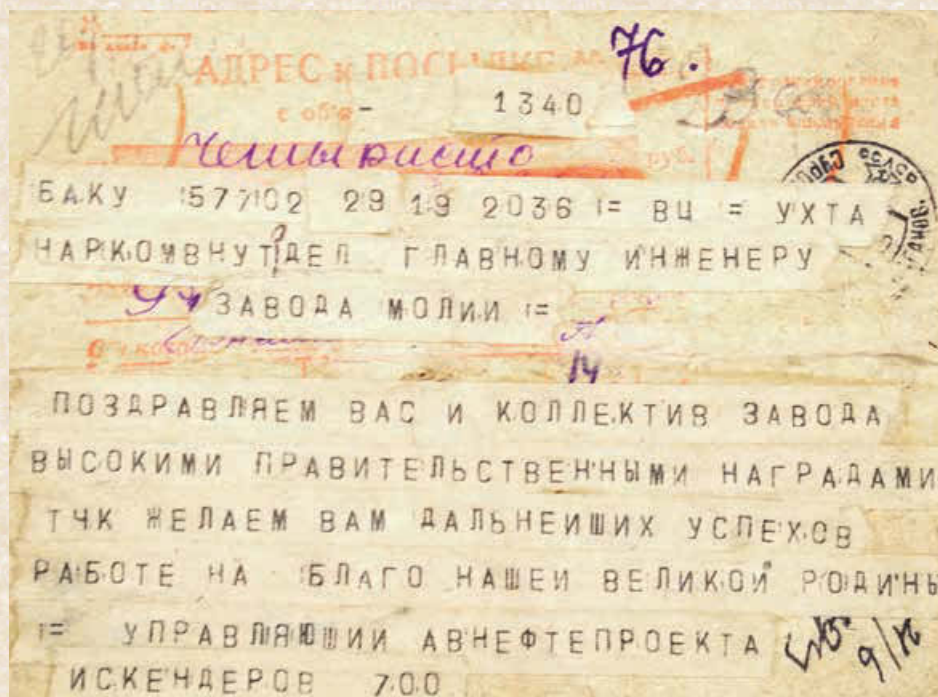 76.
АДРЕС к ПОСЫЛКЕ №
с объ - 1340
руб.
БАКУ 577102 29 19 2036 = ВЦ = УХТА
НАРКОМВНУТДЕЛ ГЛАВНОМУ ИНЖЕНЕРУ
ЗАВОДА МОЛИИ =
14
ПОЗДРАВЛЯЕМ ВАС И КОЛЛЕКТИВ ЗАВОДА
ВЫСОКИМИ ПРАВИТЕЛЬСТВЕННЫМИ НАГРАДАМИ
ТЧК ЖЕЛАЕМ ВАМ ДАЛЬНЕИШИХ УСПЕХОВ
РАБОТЕ НА БЛАГО НАШЕИ ВЕЛИКОЙ РОДИНЫ
= УПРАВЛЯЮШИИ АВНЕФТЕПРОЕКТА
ИСКЕНДЕРОВ 700